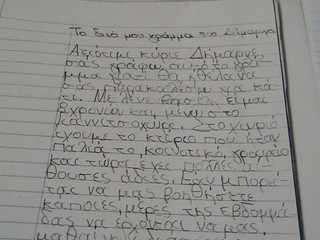 Το δικό μου γράμμα στο Δήμαρχο
Αξιότιμε κύριε Δήμαρχε,
σας γράφω αυτό το γρά-
μμα γιατί θα ήθελα να
σας παρακαλέσω για κά-
τι. Με λένε είμαι
χρονών και μένω στο
Γιαννιτσοχώρι. Στο χωριό
έχουμε το κτίριο που ήταν
παλιά το κοινοτικό γραφείο
και τώρα έχει πολλές αί-
θουσες άδειες. Εάν μπορεί-
τας να μας βοηθήσετε
κάποιες μέρες της εβδομά-
δας να έρχονται να μας